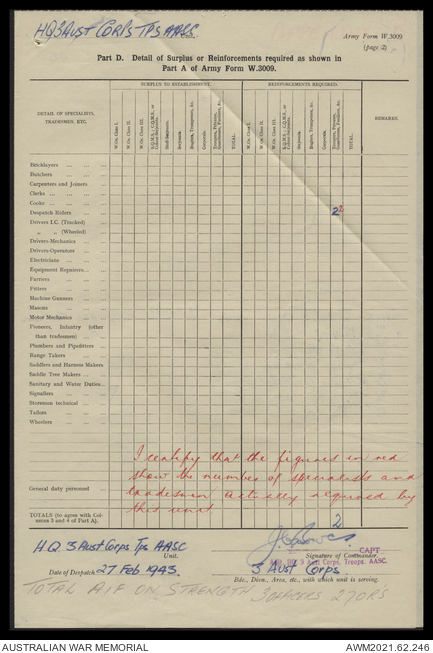 HQ 3 AUST CORPS TPS AASC
Army Form W.3009
(page 2)
Part D. Detail of Surplus or Reinforcements required as shown in
Part A of Army Form W.3009.
SURPLUS TO ESTABLISHMENT.
REINFORCEMENTS REQUIRED.
DETAIL OF SPECIALISTS,
TRADESMEN, ETC.
W.Os. Class I.
W.Os. Class II.
W.Os. Class III.
Staff-Serjeants.
Serjeants.
Buglers, Trumpeters, &c.
Corporals.
Troopers, Privates,
Guardsmen, Fusiliers, &c.
TOTAL.
W.Os. Class I.
W.Os. Class II.
W.Os. Class III.
Staff-Serjeants.
Serjeants.
Buglers, Trumpeters, &c.
Corporals.
Troopers, Privates,
Guardsmen, Fusiliers, &c.
TOTAL.
REMARKS.
Bricklayers
Butchers
Carpenters and Joiners
Clerks
Cooks
Despatch Riders 2 2
Drivers I.C. (Tracked)
„ „ (Wheeled)
Drivers-Mechanics
Drivers-Operators
Electricians
Equipment Repairers
Farriers
Fitters
Machine Gunners
Masons
Motor Mechanics
Pioneers, Infantry (other
than tradesmen)
Plumbers and Pipefitters
Range Takers
Saddlers and Harness Makers
Saddle Tree Makers
Sanitary and Water Duties
Signallers
Storemen technical
Tailors
Wheelers
I certify that the figures in red
show the number of specialists and
General duty personnel
tradesmen actually required by
this unit
TOTALS (to agree with Columns 3 and 4 of Part A).
2
HQ 3 Aust Corps Tps AASC
Unit.
Signature of Commander.
CAPT
HQ 3 Aust Corps Troops. AASC.
Date of Despatch 27 Feb 1943.
3 Aust Corps.
Bde., Divn., Area, etc., with which unit is serving.
TOTAL AIF ON STRENGTH 3 OFFICERS 27 ORS
AUSTRALIAN WAR MEMORIAL
AWM2021.62.246